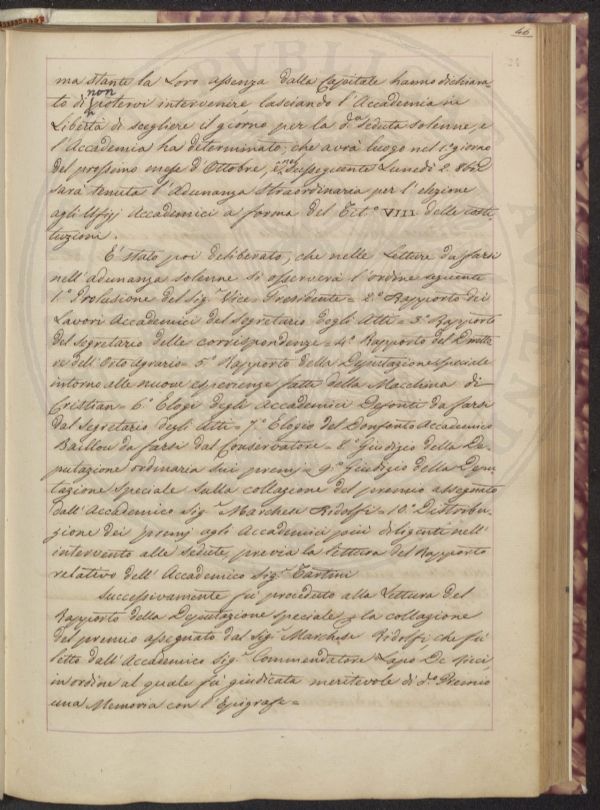 46
ma stante la Loro assenza dalla Capitale hanno dichiara-
to di non potervi intervenire lasciando l'Accademia in
Libertà di scegliere il giorno per la d.a seduta solenne, e
l'Accademia ha determinato, che avrà luogo nel 1.o giorno
del prossimo mese d'Ottobre, e nel susseguente Lunedì 2. d.o
sarà tenuta l'Adunanza straordinaria per l'elezione
agli Ufizj Accademici a forma del Tit.o VIII. delle costi-
tuzioni.
E' stato poi deliberato, che nelle Letture da farsi
nell'adunanza solenne si osserverà l'ordine seguente
1.o Prolusione del Sig.r Vice-Presidente = 2.o Rapporto dei
Lavori Accademici del Segretario degli Atti = 3.o Rapporto
del Segretario delle corrispondenze = 4.o Rapporto del Dirетto-
re dell'Orto Agrario = 5.o Rapporto della Deputazione speciale
intorno alle nuove esperienze fatte della Macchina di
Cristian = 6.o Elogi degli Accademici Defonti da farsi
dal Segretario degli Atti = 7.o Elogio del Donfonto Accademico
Baillou da farsi dal Conservatore = 8.o Giudizio della De-
putazione ordinaria sui premj = 9.o Giudizio della Depu-
tazione speciale sulla collazione del premio assegnato
dall'Accademico Sig.r Marchese Ridolfi = 10.o Distribu-
zione dei premj agli Accademici più diligenti nell'
intervento alle sedute, previa la lettura del Rapporto
relativo dell'Accademico Sig.r Tartini
Successivamente fu proceduto alla Lettura del
Rapporto della Deputazione speciale p la collazione
del premio assegnato dal Sig.r Marchese Ridolfi, che fu
letto dall'Accademico Sig.r Commendatore Lapo De Ricci
in ordine al quale fu giudicata meritevole di d.o Premio
una Memoria con l'Epigrafe =